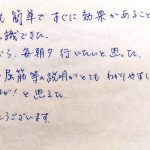 も簡単ですぐに効果があること
識できた。
から、毎朝夕行いたいと思った。
底筋等の説明がとてもわかりやすく
！と思えた。
うございます。